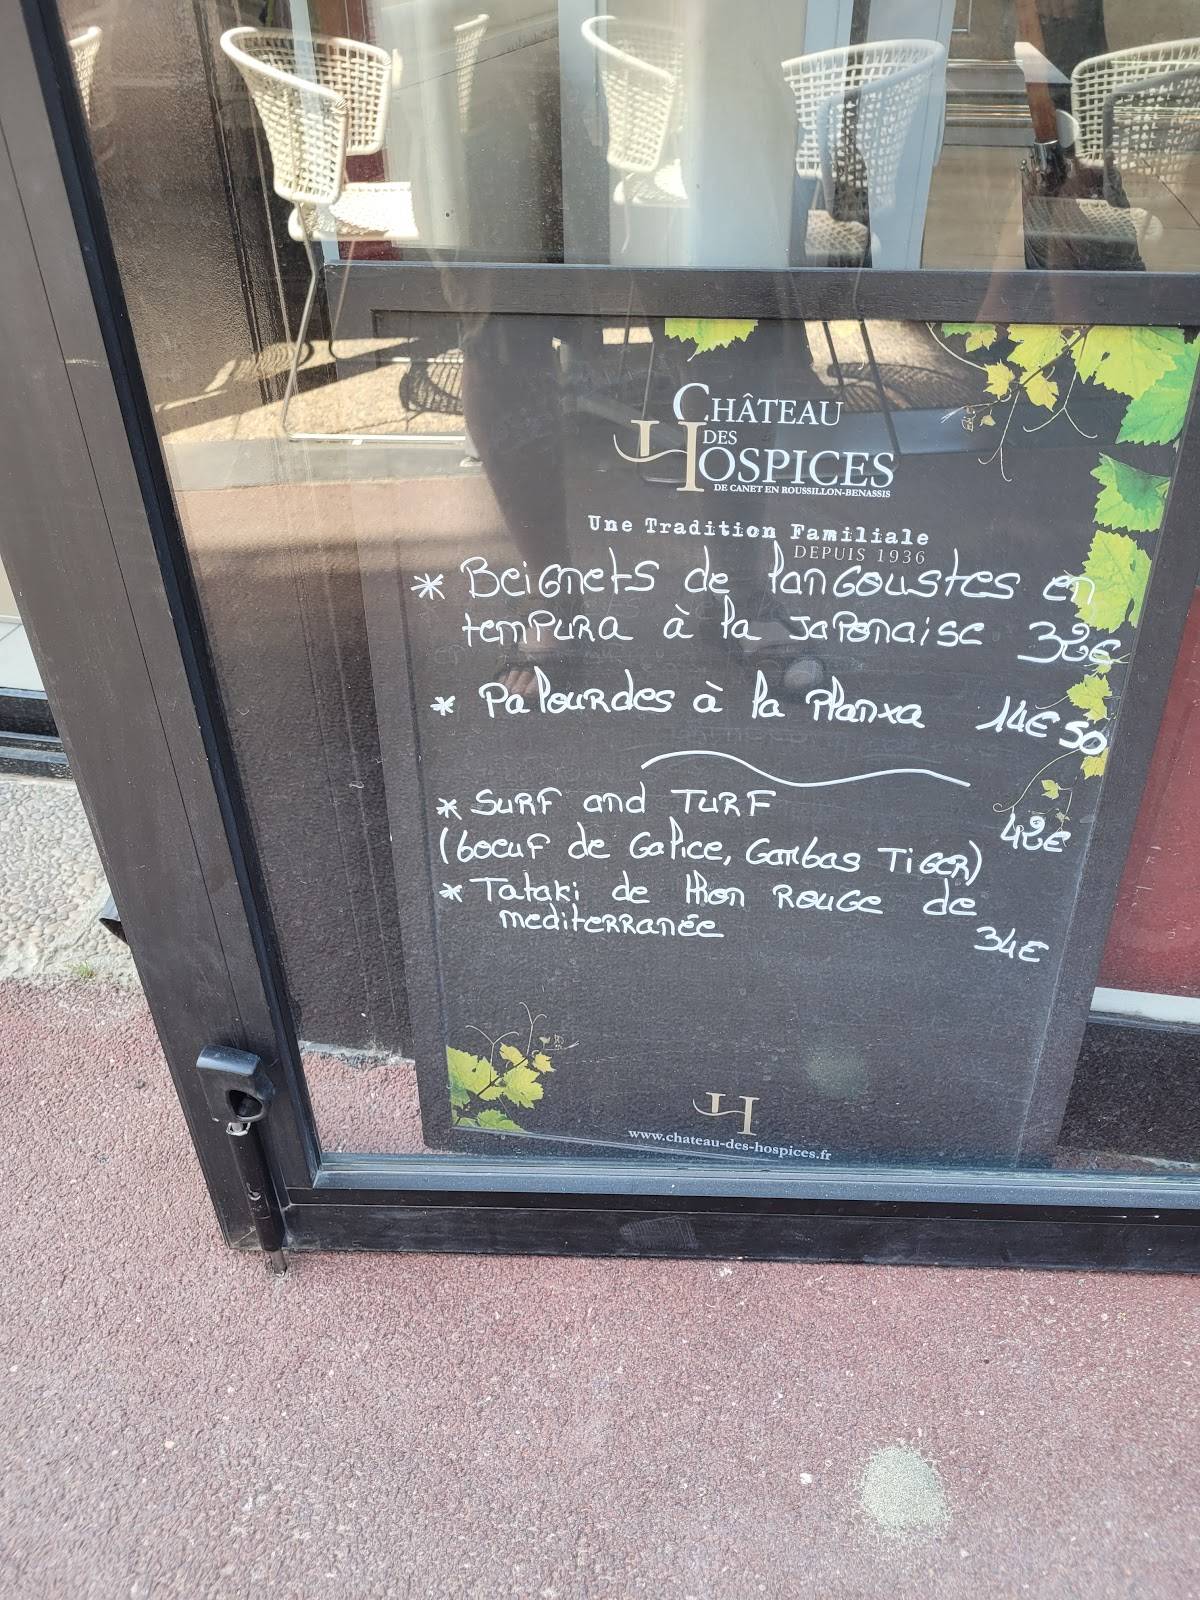 CHÂTEAU
DES
HOSPICES
DE CANET EN ROUSSILLON-BENASSIS
Une Tradition Familiale
DEPUIS 1936
* Beignets de langoustes en
tempura à la japonaise 32€
* Palourdes à la Planxa 14€50
* Surf and Turf
42€
(boeuf de Galice, Gambas Tiger)
* Tataki de thon rouge de
mediterranée
34€
H
www.chateau-des-hospices.fr